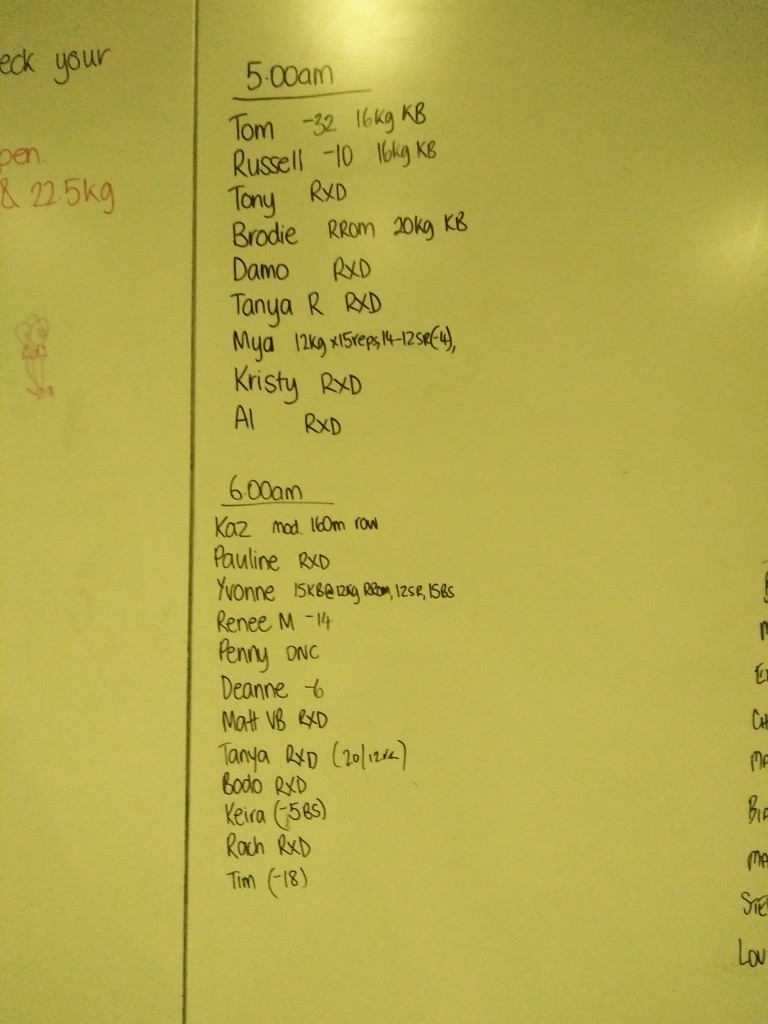 eck your
pen.
& 22.5kg
5.00am
Tom -32 16kg KB
Russell -10 16kg KB
Tony RXD
Brodie RROM 20kg KB
Damo RXD
Tanya R RXD
Mya 12kg x15reps, 14-12SR(-4),
Kristy RXD
Al RXD
6.00am
Kaz mod. 160m row
Pauline RXD
Yvonne 15KB@12kg RROM, 12SR, 15BS
Renee M -14
Penny DNC
Deanne -6
Matt VB RXD
Tanya RXD
Bodo RXD
Keira (-5BS)
Rach RXD
Tim (-18)
M
CH
MA
BIA
MA
STE
LOU